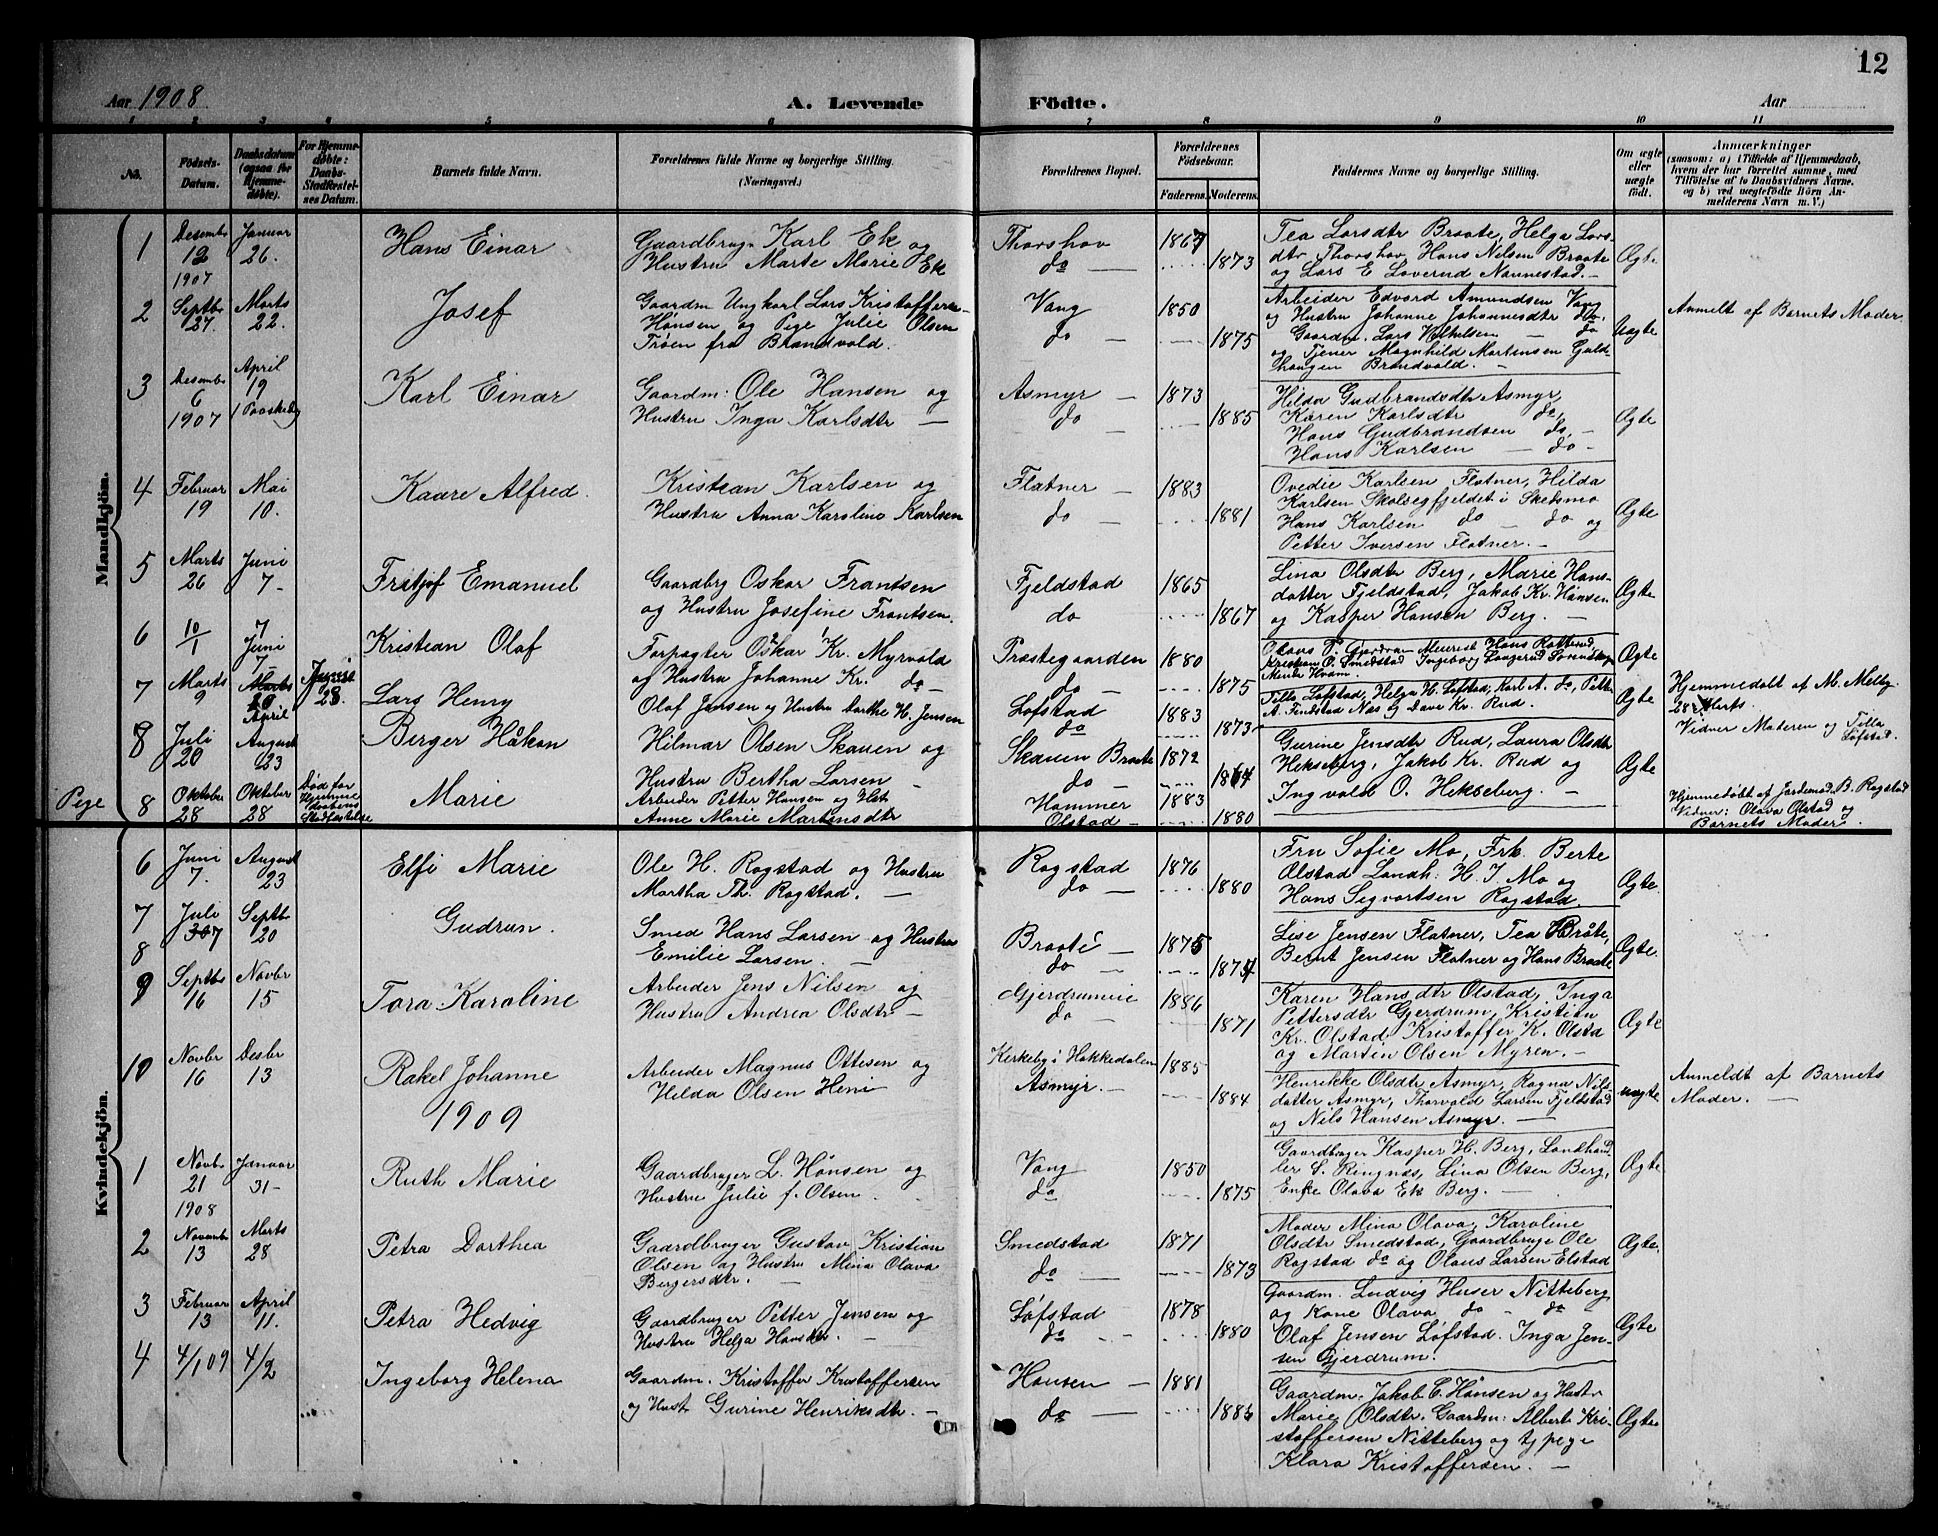 Aar 1908.
A. Levende Födte.
Aar
12
1 2 3 4 5 6 7 8 9 10 11
No.
Födsels-Datum.
Daabsdatum (ogsaa for Hjemmedöbte).
For Hjemmedöbte: Daabs-Stadfæstelses Datum.
Barnets fulde Navn.
Forældrenes fulde Navne og borgerlige Stilling. (Næringsvei.)
Forældrenes Bopæl.
Forældrenes Födselsaar.
Faderens. Moderens.
Faddernes Navne og borgerlige Stilling.
Om ægte eller uægte födt.
Anmærkninger (saasom: a) i Tilfælde af Hjemmedaab, hvem der har forrettet samme, med Tilföielse af to Daabsvidners Navne, og b) ved uægtefödte Börn Anmelderens Navn m. V.)
Mandkjön.
1 Desembr 12 1907 Januar 26. Hans Einar
Gaardbrug. Karl Ek og
Hustru Marte Marie Ek
Thorshov do — 1867 1873
Tea Larsdtr Braate, Helga Lars-
dtr Thorshov Hans Nilsen Braate
og Lars E Loverud Nannestad. —
Ægte
2 Septbr 27. Marts 22. Josef
Gaardm Ungkarl Lars Kristoffersen
Hønsen og Pige Julie Olsen
Trøen fra Brandvold.
Vang do — 1850 1875
Arbeider Edvard Amundsen Vang
og Hustru Johanne Johannesdtr do.
Gaardm. Lars — do
og Tjener Magnhild Martensen Guld-
haugen Brandvold. —
Uægte
Anmelt af Barnets Moder.
3 Desembr 6 1907 April 19 1 Paaskedag Karl Einar
Gaardm: Ole Hansen og
Hustru Inga Karlsdtr —
Asmyr — do — 1873 1885
Hilda Gudbrandsdtr Asmyr,
Karen Karlsdtr do,
Hans Gudbrandsen do, —
Hans Karlsen — do —
Ægte
4 Februar 19 Mai 10. Kaare Alfred.
Kristian Karlsen og
Hustru Anna Karoline Karlsen
Flatner — do — 1883 1881
Ovedie Karlsen Flatner, Hilda
Karlsen i Skedsmo
Hans Karlsen do — do og
Petter Iversen Flatner. —
Ægte
5 Marts 26 Juni 7 — Fritjof Emanuel
Gaardbrg Oskar Frantsen
og Hustru Josefine Frantsen.
Fjeldstad do 1865 1867
Lina Olsdtr Berg, Marie Hans-
datter Fjeldstad, Jakob Kr. Hansen
og Kasper Hansen Berg. —
Ægte
6 10/1 7 Juni Kristian Olaf
Forpagter Oskar Kr. Myrvold
og Hustru Johanne Kr. do —
Præstegaarden do — 1880 1875
Hans Rotterud,
Kristian O. Smedstad Ingeborg
Hvam.
Ægte
7 Marts 9 Marts April Juni 28. Lars Henry
Olaf Jensen og Hustru Dorthe H. Jensen
Løfstad do 1883 1873
Tilla Løfstad, Helga H. Løfstad, Karl A. do, Petter
A. Findstad Næs og Kr. Rud.
Ægte
Hjemmedøbt af M. Melby
28 Marts.
Vidner Moderen og Tilla
Løfstad.
8 Juli 20 August 23 Berger Håkon
Hilmar Olsen Skauen og
Hustru Bertha Larsen —
Skauen Braate do — 1872 1867
Gurine Jensdtr Rud, Laura Olsdtr
Hekseberg, Jakob Kr. Rud og
Ingvald O. Hekseberg. —
Ægte
Pige 8 Oktober 28 Oktober 28 Død før Stadfæstelse Marie
Arbeider Petter Hansen og Hst
Anne Marie Martinsdtr
Hammer Olstad — 1883 1880
Hjemmedøbt af Jordemod. B. Rogstad
Vidner: Olava Olstad og
Barnets Moder.
Kvindekjön.
6 Juni 7. August 23 Elfi Marie
Ole H. Rogstad og Hustru
Martha Th. Rogstad. —
Rogstad do — 1876 1880
Fru Sofie Mo, Frk. Berte
Olstad Landh: H. J. Mo og
Hans Sigvartsen Rogstad.
Ægte.
7 Juli 30 Septbr 20 Gudrun.
8
Smed Hans Larsen og Hustru
Emilie Larsen. —
Braate — do — 1875 1874
Lise Jensen Flatner, Tea Bråte,
Bernt Jensen Flatner og Hans Braate
Ægte.
9 Septbr 16 Novbr 15 Tora Karoline
Arbeider Jens Nilsen og
Hustru Andrea Olsdtr —
Gjerdrumeie do — 1886 1871
Karen Hansdtr Olstad, Inga
Pettersdtr Gjerdrum, Kristian
Kr. Olstad, Kristoffer K. Olsta
og Martin Olsen Myren. —
Ægte
10 Novbr 16 Desbr 13 Rakel Johanne
Arbeider Magnus Ottesen og
Hilda Olsen Heni
Kirkeby i Hakkedalen Asmyr. — 1885 1884
Henrikke Olsdtr Asmyr, Ragna Nils-
datter Asmyr, Thorvald Larsen Fjeldstad
og Nils Hansen Asmyr —
uægte
Anmeldt af Barnets
Moder. —
1909
1 Novbr 21 1908 Januar 31 — Ruth Marie
Gaardbruger L. Hønsen og
Hustru Julie f. Olsen.
Vang do 1850 1875
Gaardbruger Kasper H. Berg, Landhand-
ler S. Ringnæs, Lina Olsen Berg,
Enke Olava Ek Berg. —
Ægte
2 Novembr 13 Marts 28 Petra Dorthea
Gaardbruger Gustav Kristian
Olsen og Hustru Mina Olava
Bergersdtr. —
Smedstad do — 1871 1873
Moder Mina Olava, Karoline
Olsdtr Smedstad, Gaardbruge Ole
Rogstad do og Olaus Larsen Elstad
Ægte.
3 Februar 13 April 11. Petra Hedvig
Gaardbruger Petter Jensen og
Hustru Helga Hansdtr. —
Løfstad do 1878 1880
Gaardm. Ludvig Huser Nitteberg
og Kone Olava do — do
Olaf Jensen Løfstad. Inga Jen-
sen Gjerdrum.
Ægte
4 4/1 09 4/2 Ingeborg Helena
Gaardm. Kristoffer Kristoffersen
og Hust Gurine Henriksdtr. —
Hønsen — do — 1881 1885
Gaardm. Jakob C. Hønsen og Hustr
Marie Olsdtr, Gaardm: Albert Kri-
stoffersen Nitteberg og tj pige
Klara Kristoffersen. —
Ægte